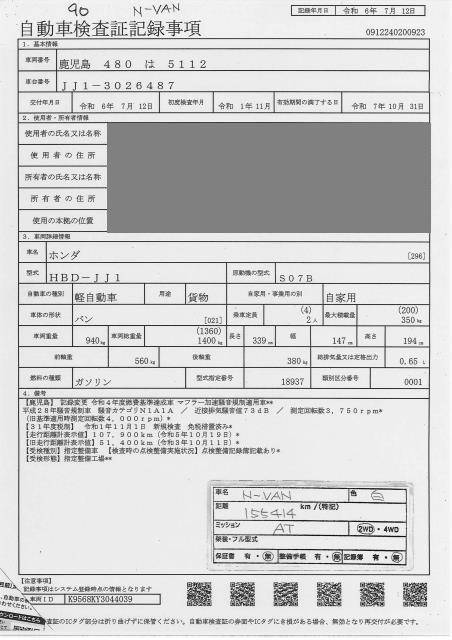 90 N-VAN
記録年月日 令和 6年 7月 12日
自動車検査証記録事項
0912240200923
1. 基本情報
車両番号 鹿児島 480 は 5112
車台番号 JJ1-3026487
交付年月日 令和 6年 7月 12日 初度検査年月 令和 1年11月 有効期間の満了する日 令和 7年10月 31日
2. 使用者・所有者情報
使用者の氏名又は名称
使用者の住所
所有者の氏名又は名称
所有者の住所
使用の本拠の位置
3. 車両詳細情報
車名 ホンダ [296]
型式 HBD-JJ1 原動機の型式 S07B
自動車の種別 軽自動車 用途 貨物 自家用・事業用の別 自家用
車体の形状 バン [021] 乗車定員 (4) 2人 最大積載量 (200) 350kg
車両重量 940kg 車両総重量 (1360) 1400kg 長さ 339cm 幅 147cm 高さ 194cm
前軸重 560kg 後軸重 380kg 総排気量又は定格出力 0.65L
燃料の種類 ガソリン 型式指定番号 18937 類別区分番号 0001
4. 備考
【鹿児島】 記録変更 令和4年度燃費基準達成車 マフラー加速騒音規制適用車**
平成28年騒音規制車 騒音カテゴリN1A1A / 近接排気騒音値73dB / 測定回転数3,750rpm*
(旧基準適用時測定回転数4,000rpm)*
【31年度規制】 令和1年11月1日 新規検査 免税措置済み*
【走行距離計表示値】107,900km(令和5年10月19日)*
【旧走行距離計表示値】51,400km(令和3年10月11日)*
【受検種別】指定整備車 【検査時の点検整備実施状況】点検整備記録簿記載あり*
【受検形態】指定整備工場**
車名 N-VAN 色 白
距離 155414 km/(特記)
ミッション AT 2WD・4WD
架装・フル型式
保証書 有・無 整備手帳 有・無 記録簿 有・無
【注意事項】
記録事項はシステム登録時点の情報となります
車両ID K9568KY3044039
ダウンロードはこちら
検査証のICタグ部分は折り曲げずに保管ください。自動車検査証の券面やICタグに き損がある場合、無効となり再交付が必要です。